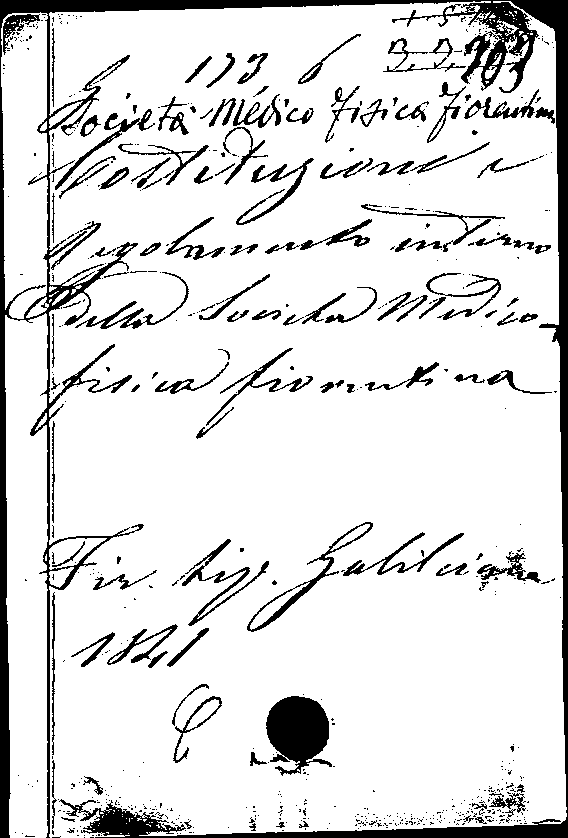 173 6
703
Società Médico Fisica Fiorentina
Costituzione e
Regolamento interno
della Società Medico-
fisica fiorentina
Fir. tip. Galileiana
1841